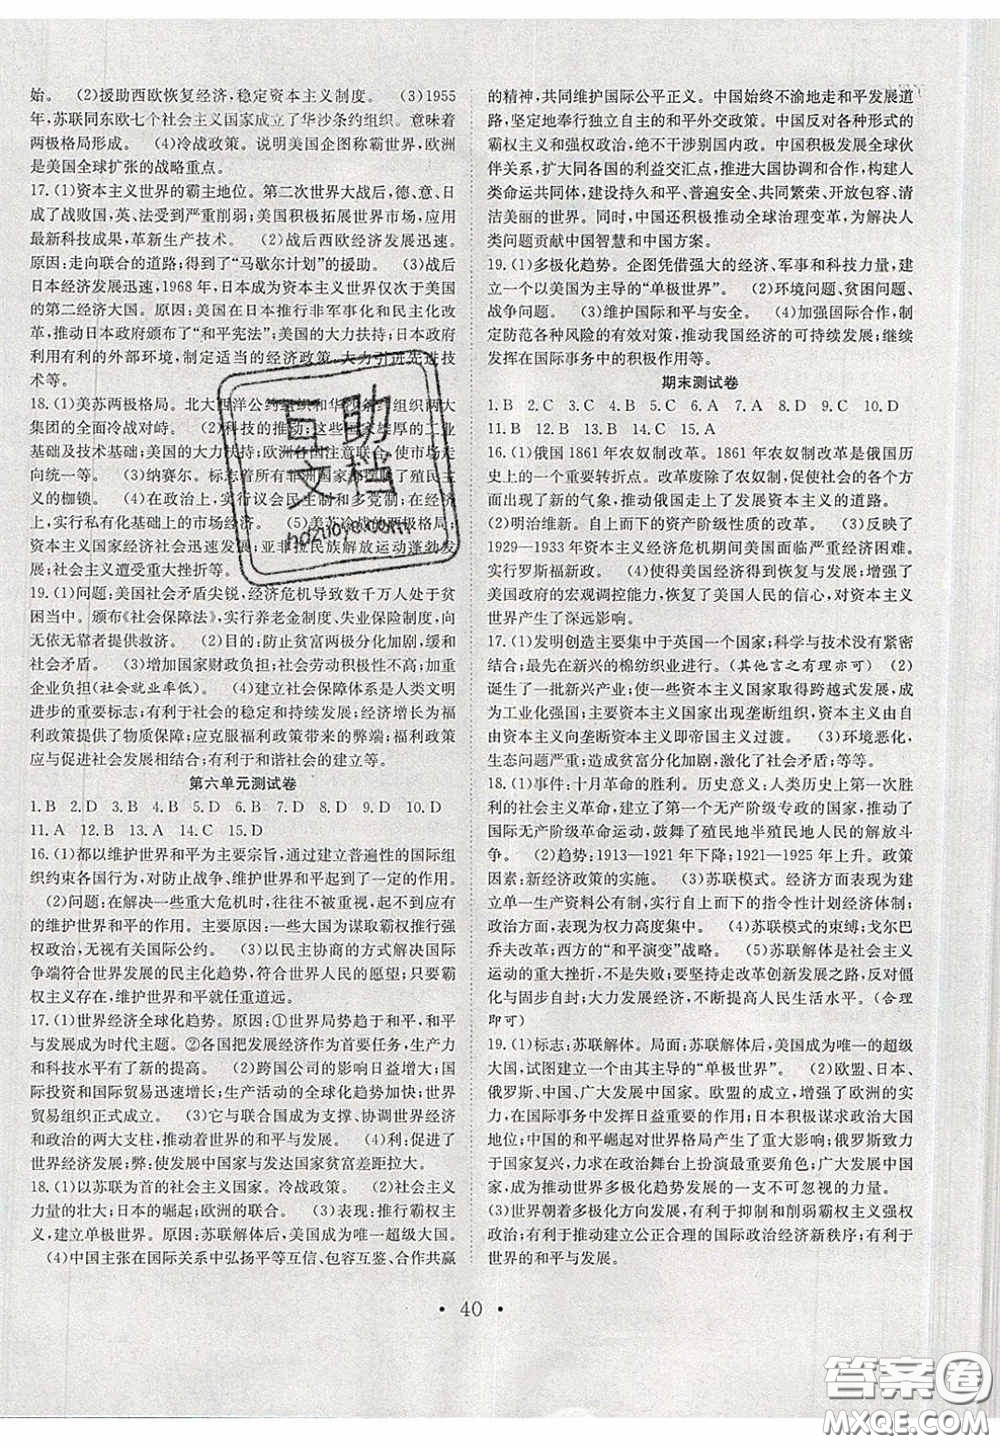 始。 (2)援助西欧恢复经济,稳定资本主义制度。 (3)1955
年,苏联同东欧七个社会主义国家成立了华沙条约组织。意味着
两极格局形成。 (4)冷战政策。说明美国企图称霸世界,欧洲
是美国全球扩张的战略重点。
17.(1)资本主义世界的霸主地位。第二次世界大战后,德、意、日
成了战败国,英、法受到严重削弱;美国积极拓展世界市场,应用
最新科技成果,革新生产技术。 (2)战后西欧经济发展迅速。
原因:走向联合的道路;得到了“马歇尔计划”的援助。 (3)战后
日本经济发展迅速,1968年,日本成为资本主义世界仅次于美国
的第二经济大国。原因:美国在日本推行非军事化和民主化改
革,推动日本政府颁布了“和平宪法”;美国的大力扶持;日本政府
利用有利的外部环境,制定适当的经济政策,大力引进先进技
术等。
18.(1)美苏两极格局。北大西洋公约组织和华沙条约组织两大
集团的全面冷战对峙。 (2)科技的推动;这些国家雄厚的工业
基础及技术基础;美国的大力扶持;欧洲各国注意联合,使市场走
向统一等。 (3)纳赛尔。标志着所有非洲国家都摆脱了殖民主义
的枷锁。 (4)在政治上,实行议会民主制和多党制;在经济
上,实行私有化基础上的市场经济。 (5)美苏冷战的两极格局;
资本主义国家经济社会迅速发展;亚非拉民族解放运动蓬勃发
展;社会主义遭受重大挫折等。
19.(1)问题:美国社会矛盾尖锐,经济危机导致数千万人处于贫
困当中。颁布《社会保障法》,实行养老金制度、失业保险制度,向
无依无靠者提供救济。 (2)目的:防止贫富两极分化加剧,缓和
社会矛盾。 (3)增加国家财政负担;社会劳动积极性不高;加重
企业负担(社会就业率低)。 (4)建立社会保障体系是人类文明
进步的重要标志;有利于社会的稳定和持续发展;经济增长为福
利政策提供了物质保障;应克服福利政策带来的弊端;福利政策
应与社会经济发展相适应;有利于和谐社会的建立等。
第六单元测试卷
1.B 2.D 3.B 4.D 5.D 6.D 7.D 8.D 9.D 10.D
11.A 12.B 13.A 14.C 15.D
16.(1)都以维护世界和平为主要宗旨,通过建立普遍性的国际组
织约束各国行为,对防止战争、维护世界和平起到了一定的作用。
(2)问题:在解决一些重大危机时,往往不被重视,起不到应有的
维护世界和平的作用。主要原因:一些大国为谋取霸权推行强
权政治,无视有关国际公约。 (3)以民主协商的方式解决国际
争端符合世界发展的民主化趋势,符合世界人民的愿望;只要霸
权主义存在,维护世界和平就任重道远。
17.(1)世界经济全球化趋势。原因:①世界局势趋于和平,和平
与发展成为时代主题。②各国把发展经济作为首要任务,生产力
和科技水平有了新的提高。 (2)跨国公司的影响日益增大;国
际投资和国际贸易迅速增长;生产活动的全球化趋势明显;世界
贸易组织正式成立。 (3)它与联合国成为支撑、协调世界经济
和政治的两大支柱,推动着世界的和平与发展。 (4)利:促进了
世界的发展;弊:使发展中国家与发达国家贫富差距拉大。
18.(1)以苏联为首的社会主义国家。冷战政策。 (2)社会主义
力量的壮大;日本的崛起;欧洲的联合。 (3)表现:推行霸权主
义,建立单极世界。原因:苏联解体后,美国成为唯一超级大国。
(4)中国主张在国际关系中弘扬平等互信、包容互鉴、合作共赢
的精神,共同维护国际公平正义。中国始终不渝地走和平发展道
路,坚定地奉行独立自主的和平外交政策。中国反对各种形式的
霸权主义和强权政治,不干涉别国内政。中国积极发展全球伙
伴关系,扩大同各国的利益交汇点,推进大国协调和合作,构建人
类命运共同体,建设持久和平、普遍安全、共同繁荣、开放包容、清
洁美丽的世界。同时,中国还积极推动全球治理变革,为解决人
类问题贡献中国智慧和中国方案。
19.(1)多极化趋势。企图凭借强大的经济、军事和科技力量,建
立一个以美国为主导的“单极世界”。 (2)环境问题、贫困问题、
战争问题。 (3)维护国际和平与安全。 (4)加强国际合作,制
定防范各种风险的有效对策,推动我国经济的可持续发展;继续
发挥在国际事务中的积极作用等。
期末测试卷
1.B 2.C 3.C 4.B 5.C 6.A 7.A 8.D 9.C 10.D
11.B 12.B 13.B 14.C 15.A
16.(1)俄国1861年农奴制改革。1861年农奴制改革是俄国历史
上的一个重要转折点。改革废除了农奴制,促使社会的各个方面
出现了新的气象,推动俄国走上了发展资本主义的道路。
(2)明治维新。自上而下的资产阶级性质的改革。 (3)反映了
1929—1933年资本主义经济危机期间美国面临严重经济困难。
实行罗斯福新政。 (4)使得美国经济得到恢复与发展,增强了
美国政府的宏观调控能力,恢复了美国人民的信心,对资本主义
世界产生了深远影响。
17.(1)发明创造主要集中于英国一个国家;科学与技术没有紧密
结合;最先在新兴的棉纺织业进行。(其他言之有理亦可) (2)
诞生了一批新兴产业;使一些资本主义国家取得跨越式发展,成
为工业化强国;主要资本主义国家出现垄断组织,资本主义由自
由资本主义向垄断资本主义即帝国主义过渡。 (3)环境恶化,
生态问题严重;造成贫富分化加剧;造成人情淡漠;等等。
18.(1)事件:十月革命的胜利。历史意义:人类历史上第一次胜
利的社会主义革命,建立了第一个无产阶级专政的国家,推动了
国际无产阶级革命运动,鼓舞了殖民地半殖民地人民的解放斗
争。 (2)趋势:1913—1921年下降;1921—1925年上升。政策
因素:新经济政策的实施。 (3)苏联模式。经济方面表现为建
立单一生产资料公有制,实行自上而下的指令性计划经济体制;
政治方面,表现为权力高度集中。 (4)苏联模式的束缚;戈尔巴
乔夫改革;西方的“和平演变”战略。 (5)苏联解体是社会主义
运动的重大挫折,不是失败;要坚持走改革创新发展之路,反对僵化
与固步自封;大力发展经济,不断提高人民生活水平。(合理
即可)
19.(1)标志:苏联解体。局面:苏联解体后,美国成为唯一的超级
大国,试图建立一个由其主导的“单极世界”。 (2)欧盟、日本、
俄罗斯、中国、广大发展中国家。欧盟的成立,增强了欧洲的实
力,在国际事务中发挥日益重要的作用;日本积极谋求政治大国
地位;中国的和平崛起对世界格局产生了重大影响;俄罗斯作为
国家复兴,力求在政治舞台上扮演最重要的角色;广大发展中国
家,已成为推动世界多极化趋势发展的一支不可小视的力量。
(3)世界朝着多极化方向发展,有利于抑制和削弱霸权主义强权
政治;有利于推动建立公正合理的国际政治经济新秩序;有利于
世界的和平与发展。
· 40 ·
互助文档
hdzuoye.com
答案圈
MXQE.COM